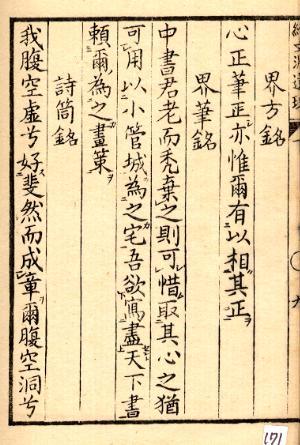 界方銘
心正筆正亦惟爾有以相其正
界筆銘
中書君老而禿棄之則可惜取其心之猶
可用以小管城為之宅吾欲寫盡天下書
賴爾為之畫策
詩筒銘
我腹空虛兮好斐然而成章爾腹空洞兮
171